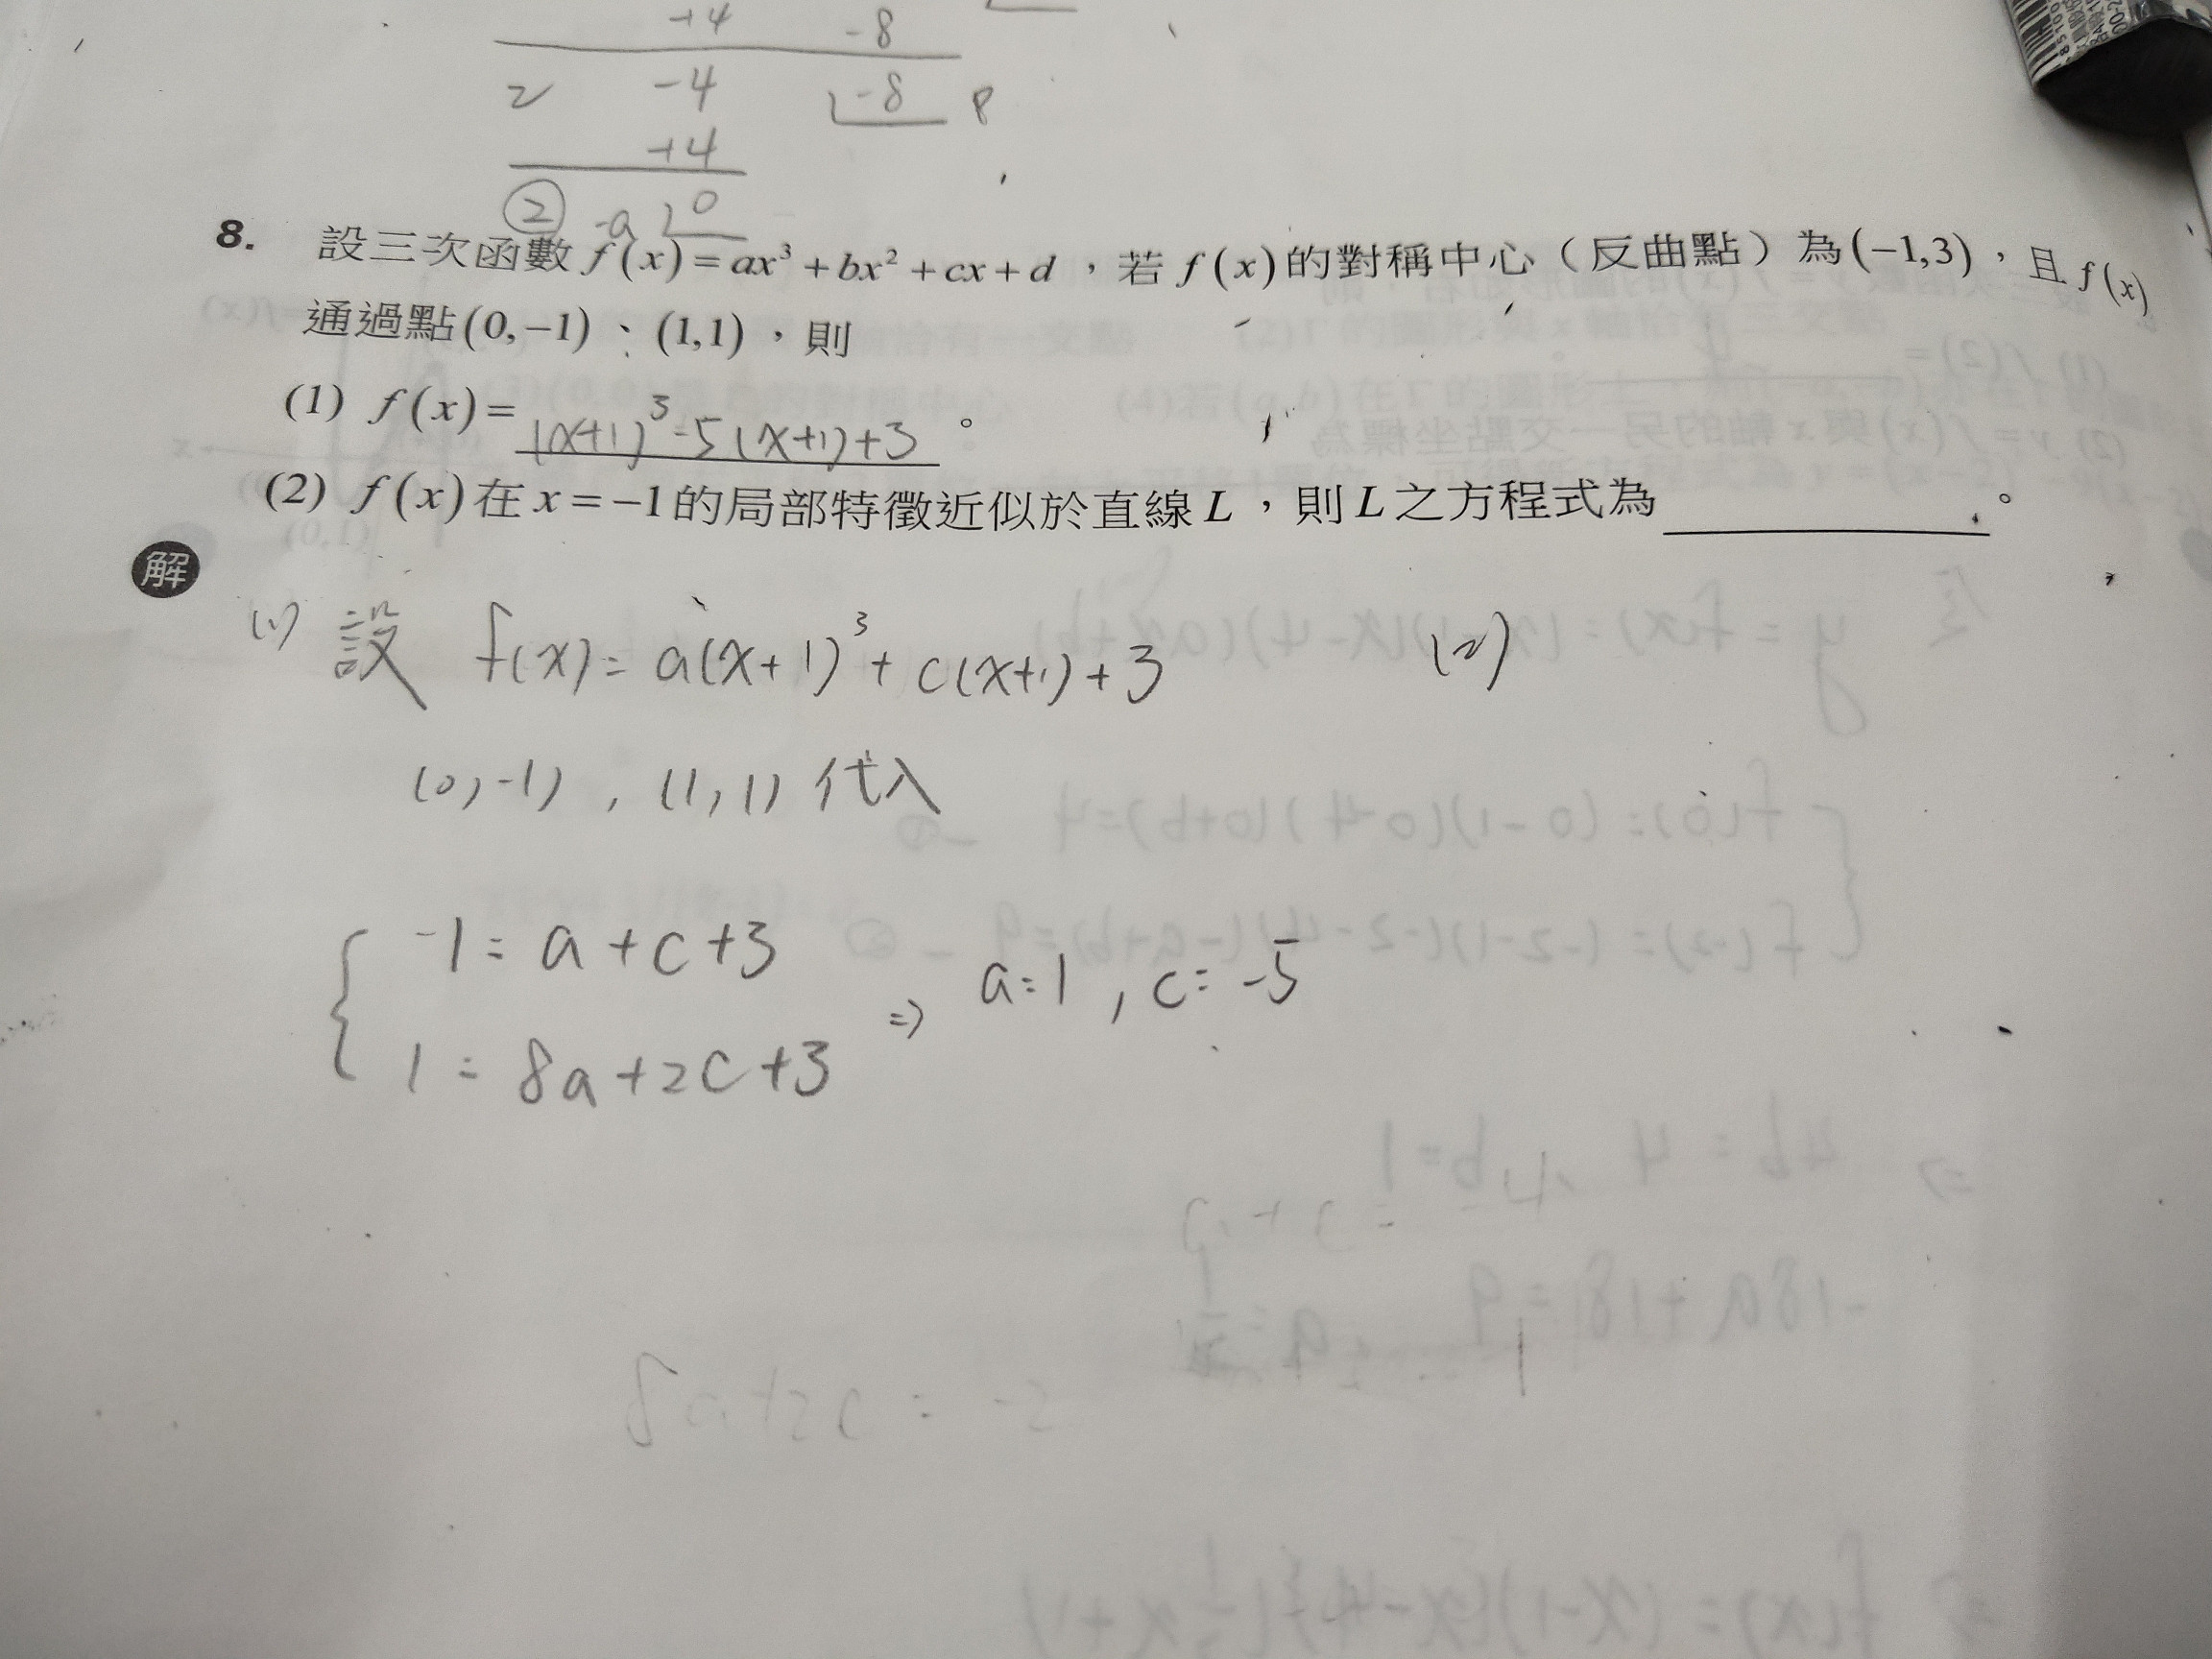 +4 -8
2 -4 -8
+4
2 -a 0
8. 設三次函數 f(x)=ax³+bx²+cx+d，若 f(x)的對稱中心（反曲點）為(−1,3)，且 f(x)
通過點(0,−1)、(1,1)，則
(1) f(x)= (x+1)³-5(x+1)+3 。
(2) f(x)在 x=−1的局部特徵近似於直線L，則L之方程式為 。
解
(1) 設 f(x)= a(x+1)³+c(x+1)+3 (2)
(0,-1), (1,1) 代入
-1= a+c+3
⇒ a=1, c=-5
1= 8a+2c+3
8a+2c = -2